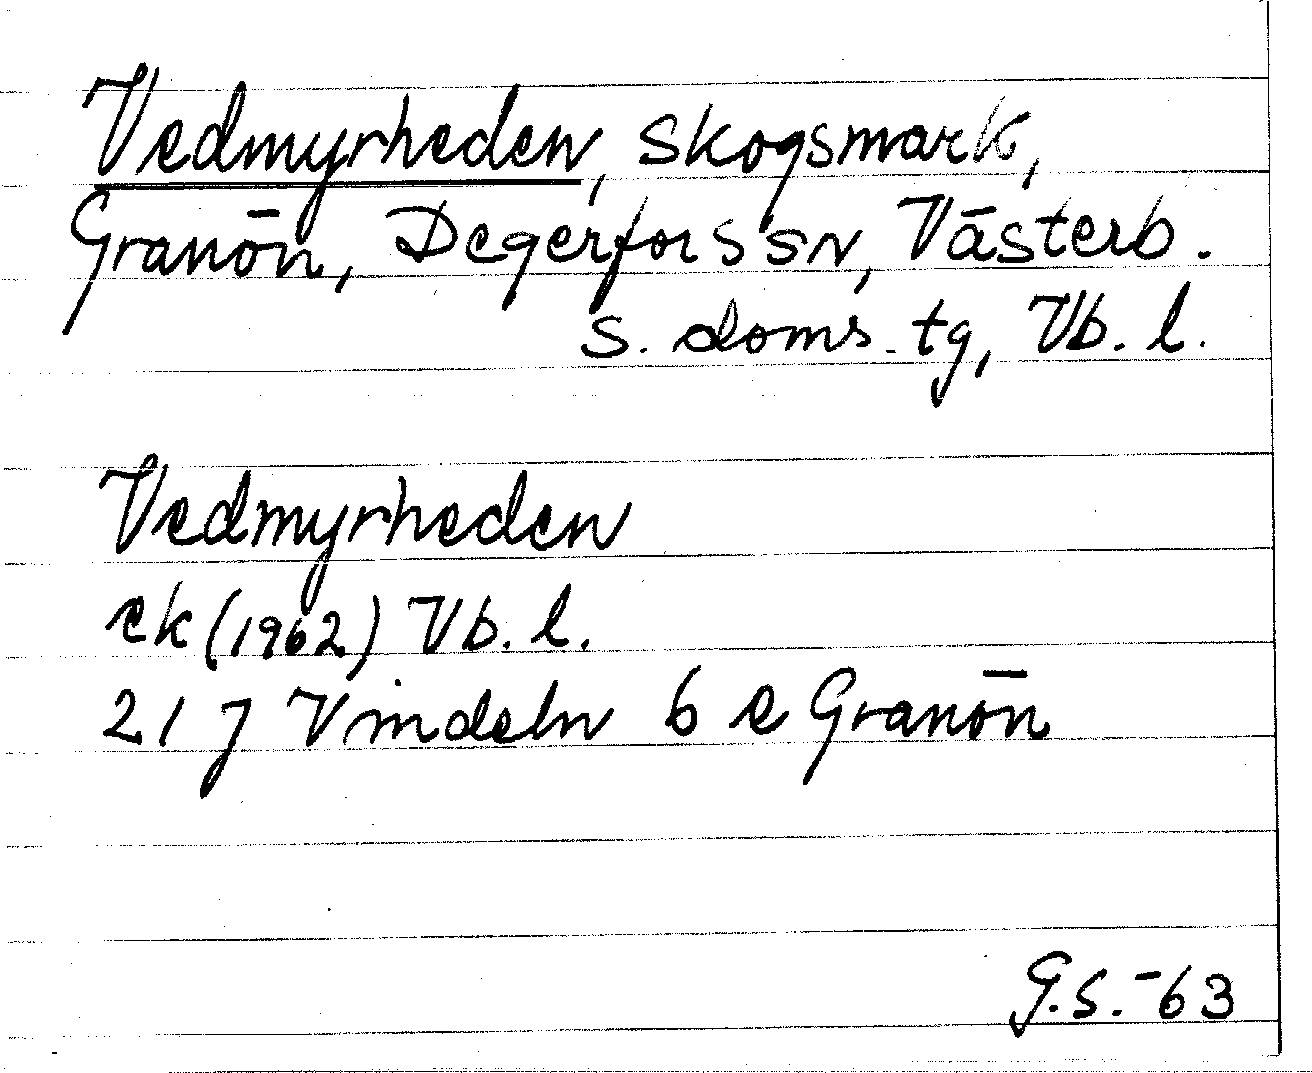 Vedmyrheden, skogsmark,
Granön, Degerfors sn, Västerb.
s. doms. tg, Vb. l.
Vedmyrheden
ek (1962) Vb. l.
21 J Vindeln 6 e Granön
G.S. -63